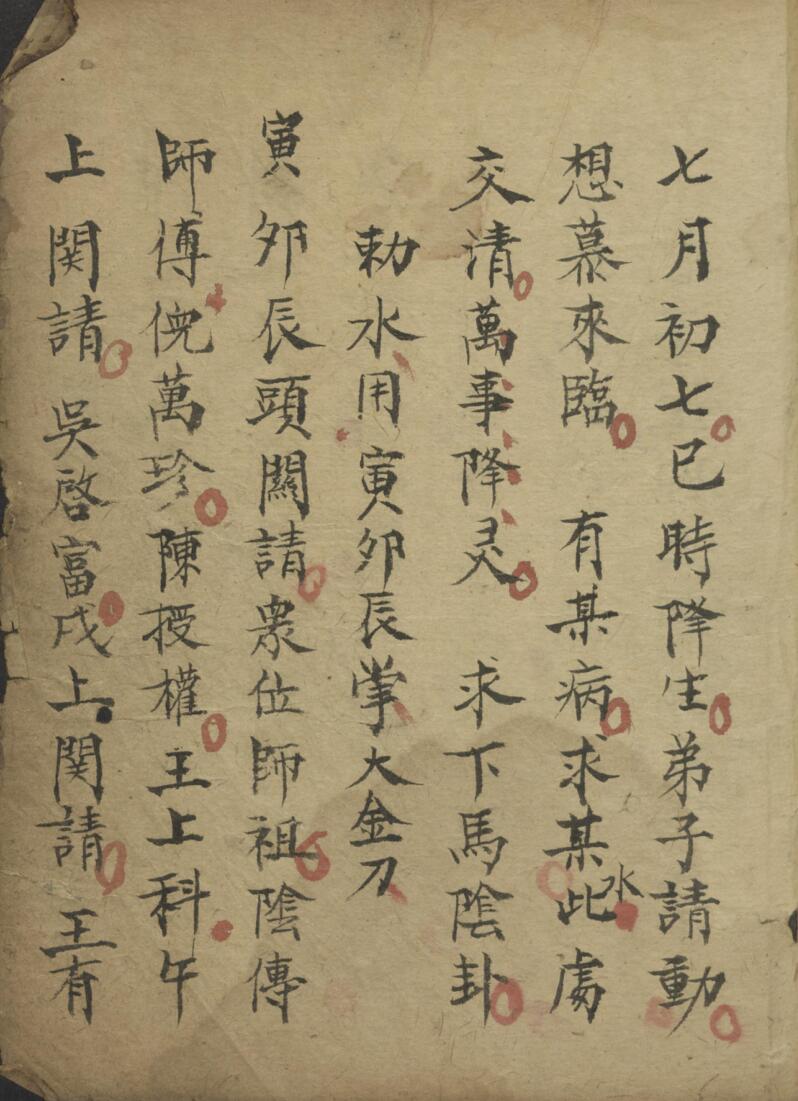 七月初七巳時降生弟子請動
想慕來臨　有某病求某水此處
交清萬事降灵　求下馬陰卦
勅水用寅卯辰掌大金刀
寅卯辰頭關請眾位師祖陰傳
師傅倪萬珍陳授權王上科午
上関請　吳啓富戌上関請　王有